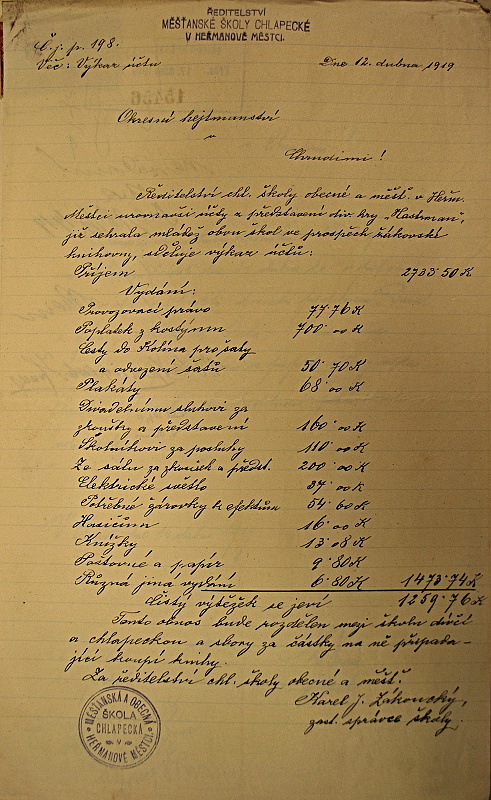 ŘEDITELSTVÍ
MĚŠŤANSKÉ ŠKOLY CHLAPECKÉ
V HEŘMANOVĚ MĚSTCI.
Č. j. p. 198.
Věc: Výkaz účtu
Dne 12. dubna 1919
Okresní hejtmanství
v
Chrudimi!
Ředitelství chl. školy obecné a měšť. v Heřm.
Městci urovnavši účty z představení div. hry „Hastrman“,
již sehrála mládež obou škol ve prospěch žákovské
knihovny, sděluje výkaz účtů:
Příjem 2733·50 K
Vydání:
Provozovací právo 77·76 K
Poplatek z kostymu 700·00 K
Cesty do Kolína pro šaty
a odvezení šatů 50·70 K
Plakáty 68·00 K
Divadelnímu sluhovi za
zkoušky a představení 160·00 K
Školníkovi za posluhy 110·00 K
Ze sálu za zkoušek a předst. 200·00 K
Elektrické světlo 37·00 K
Potřebné žárovky k efektům 54·60 K
Hasičům 16·00 K
Knížky 13·08 K
Poštovné a papír 9·80 K
Různá jiná vydání 6·80 K 1473·74 K
Čistý výtěžek se jeví 1259·76 K
Tento obnos bude rozdělen mezi školu dívčí
a chlapeckou a sbory za částky na ně připada-
jící koupí knihy.
Za ředitelství chl. školy obecné a měšť.
Karel J. Zákoucký,
zast. správce školy.
MĚŠŤANSKÁ A OBECNÁ
ŠKOLA
CHLAPECKÁ
V
HEŘMANOVĚ MĚSTCI.